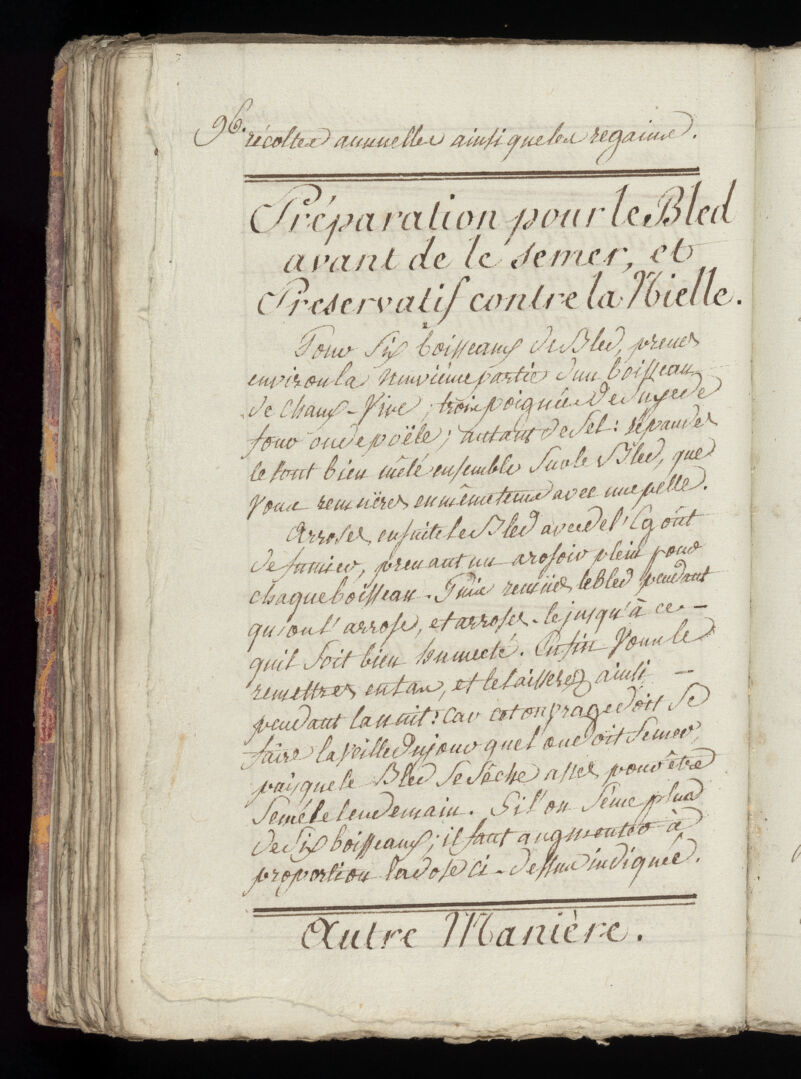 96.
récoltes annuelles ainsi que les regains.
Préparation pour le Bled
avant de le semer, et
Preservatif contre la Nielle.
Pour Six boisseaux de Bled, prenés
environ la neuvième partie d'un boisseau
de chaux-vive, trois poignées de Suye de
four ou de poële; autant de Sel: répandés
le tout bien mêlé ensemble Sur le Bled, que
vous remuïeres en même tems avec une pelle.
Arrosés ensuite le Bled avec de l'Egoût
de fumier, prenant un arosoir plein pour
chaque boisseau. Puis remüés le Bled pendant
qu'on l'arrose, et arrosés-le jusqu'à ce-
qu'il Soit bien humecté. Enfin Vous le
remettres en tas, et le laisserez ainsi -
pendant la nuit: car cet ouvrage doit Se
faire la veille du jour que l'on doit Semer,
puisque le Bled Se Sêche assés pour être
Semé le lendemain. Si l'on Sême plus
de Six boisseaux; il faut augmenter à
proportion la dose ci-dessus indiquée.
Autre Manière.